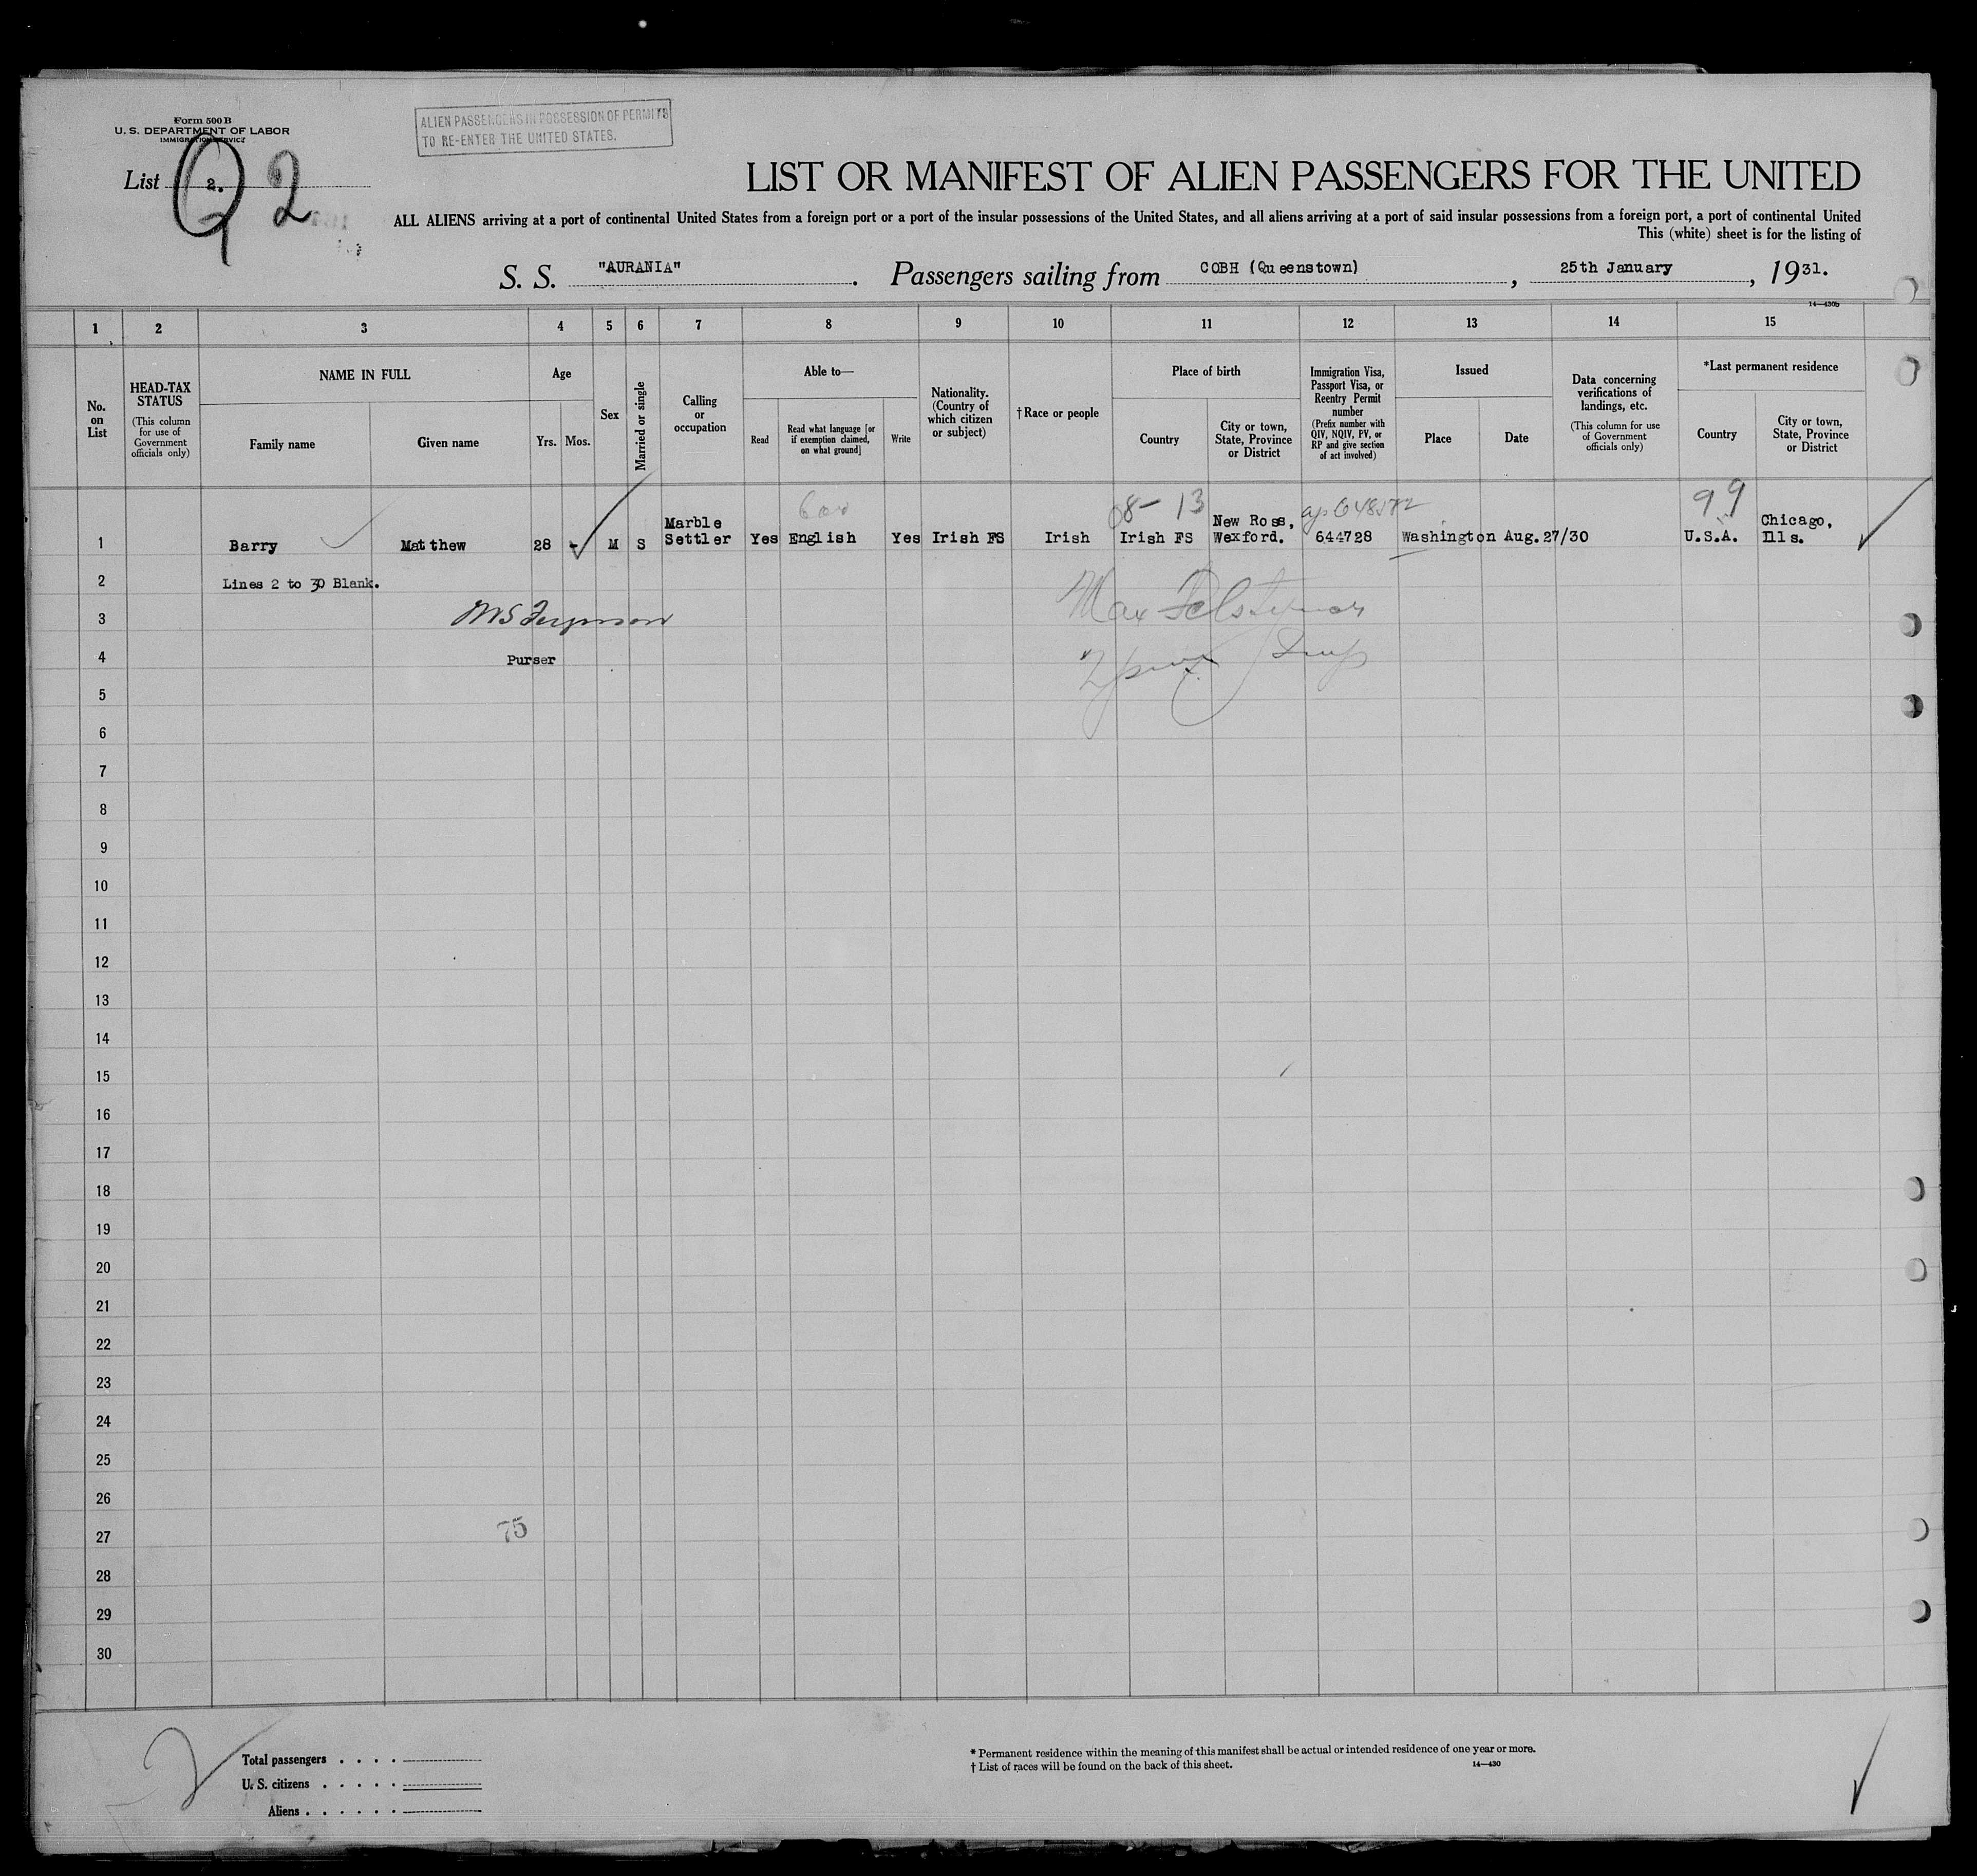 Form 500 B
U. S. DEPARTMENT OF LABOR
IMMIGRATION SERVICE
ALIEN PASSENGERS IN POSSESSION OF PERMITS
TO RE-ENTER THE UNITED STATES.
List 2.
Q 2
LIST OR MANIFEST OF ALIEN PASSENGERS FOR THE UNITED
ALL ALIENS arriving at a port of continental United States from a foreign port or a port of the insular possessions of the United States, and all aliens arriving at a port of said insular possessions from a foreign port, a port of continental United
This (white) sheet is for the listing of
S. S. "AURANIA". Passengers sailing from COBH (Queenstown), 25th January, 1931.
14—430b
1 2 3 4 5 6 7 8 9 10 11 12 13 14 15
No. on List
HEAD-TAX STATUS (This column for use of Government officials only)
NAME IN FULL
Family name Given name
Age
Yrs. Mos.
Sex
Married or single
Calling or occupation
Able to—
Read Read what language [or if exemption claimed, on what ground] Write
Nationality. (Country of which citizen or subject)
† Race or people
Place of birth
Country City or town, State, Province or District
Immigration Visa, Passport Visa, or Reentry Permit number (Prefix number with QIV, NQIV, PV, or RP and give section of act involved)
Issued
Place Date
Data concerning verifications of landings, etc. (This column for use of Government officials only)
*Last permanent residence
Country City or town, State, Province or District
08- 13 99
1 Barry Matthew 28 - M S Marble Settler Yes English Yes Irish FS Irish Irish FS New Ross, Wexford. 644728 Washington Aug.27/30 U.S.A. Chicago, Ills.
2 Lines 2 to 30 Blank.
3 Ferguson Max
4 Purser
5
6
7
8
9
10
11
12
13
14
15
16
17
18
19
20
21
22
23
24
25
26
27 75
28
29
30
Total passengers . . . .
U. S. citizens . . . . .
Aliens . . . . . .
* Permanent residence within the meaning of this manifest shall be actual or intended residence of one year or more.
† List of races will be found on the back of this sheet. 14—430